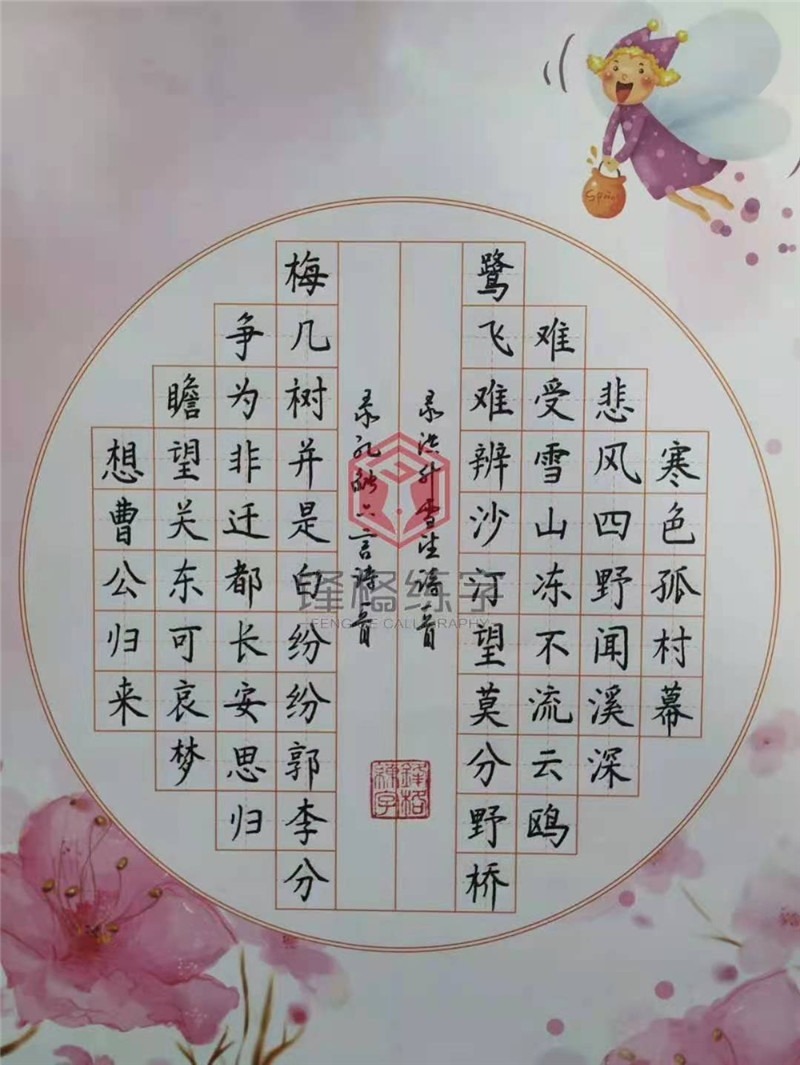 寒色孤村幕
悲风四野闻溪深
难受雪山冻不流云鸥
鹭飞难辨沙汀望莫分野桥
录洪升雪望诗一首
录孔融六言诗一首
梅几树并是白纷纷郭李分
争为非迁都长安思归
瞻望关东可哀梦
想曹公归来
鋒格練字
锋格练字
FENG GE CALLIGRAPHY